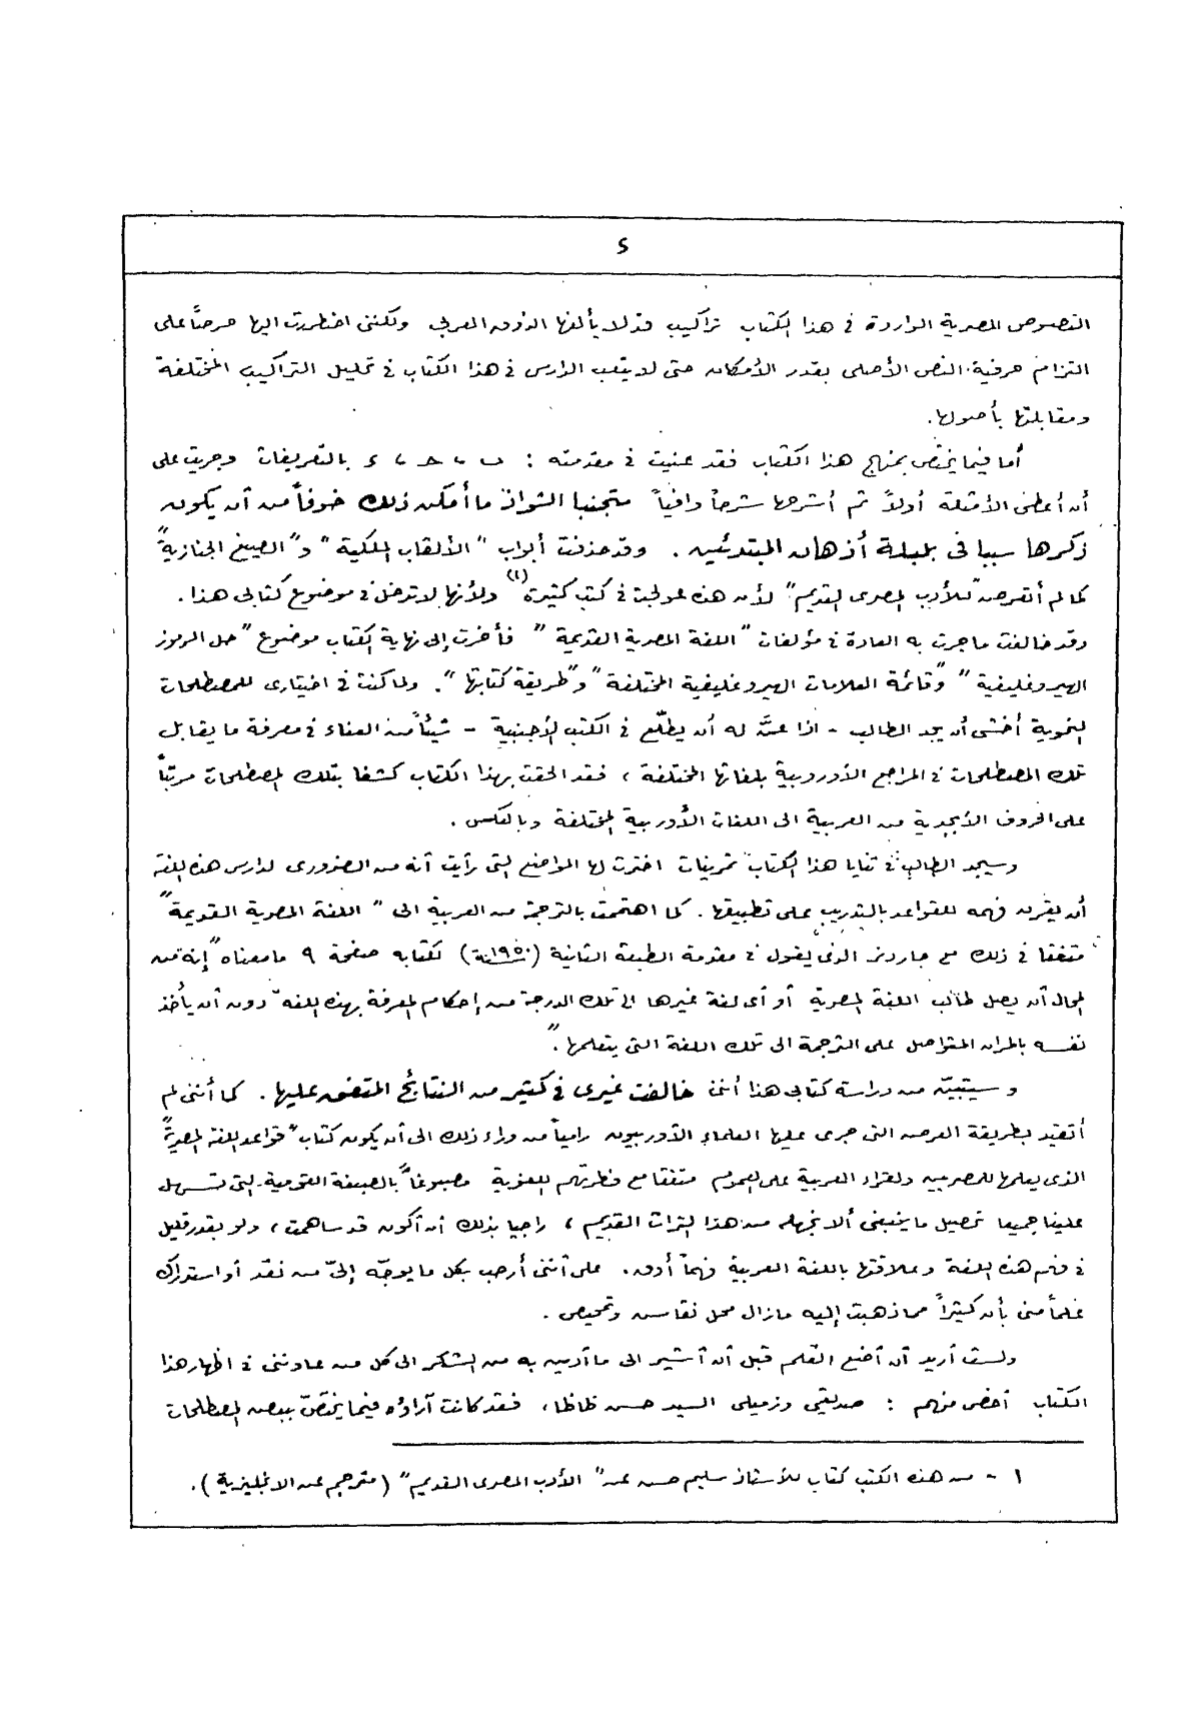 د
النصوص المصرية الواردة فى هذا الكتاب تراكيب قد لا يألفها الذوق العربى ولكننى اضطررت اليها حرصاً على
التزام حرفية النص الأصلى بقدر الأمكان حتى لا يتعب الدارس فى هذا الكتاب فى تحليل التراكيب المختلفة
ومقابلتها بأصولها.
أما فيما يختص بمنهج هذا الكتاب فقد عنيت فى مقدمته : ب ، ح ، د بالتعريفات وجريت على
أن أعطى الأمثلة أولاً ثم أشرحها شرحاً وافياً متجنبا الشواذ ما أمكن ذلك خوفاً من أن يكون
ذكرها سببا فى بلبلة أذهان المبتدئين . وقد حذفت أبواب " الألقاب الملكية " و" الصيغ الجنازية "
كما لم أتعرض " للأدب المصرى القديم " لأن هذه عولجت فى كتب كثيرة (١) ولأنها لا تدخل فى موضوع كتابى هذا .
وقد خالفت ما جرت به العادة فى مؤلفات " اللغة المصرية القديمة " فأخرت إلى نهاية الكتاب موضوع " حل الرموز
الهيروغليفية " و"قائمة العلامات الهيروغليفية المختلفة " و"طريقة كتابتها ". ولما كنت فى اختيارى للمصطلحات
النحوية أخشى أن يجد الطالب - اذا عنَّ له أن يطلّع فى الكتب الأجنبية - شيئاً من العناء فى معرفة ما يقابل
تلك المصطلحات فى المراجع الأوروبية بلغاتها المختلفة ، فقد الحقت بهذا الكتاب كشفا بتلك المصطلحات مرتباً
على الحروف الأبجدية من العربية الى اللغات الأوربية المختلفة وبالعكس .
وسيجد الطالب فى ثنايا هذا الكتاب تمرينات اخترت لها المواضع التى رأيت أنه من الضرورى لدارس هذه اللغة
أن يقرن فهمه للقواعد بالتدريب على تطبيقها . كما اهتممت بالترجمة من العربية الى " اللغة المصرية القديمة "
متفقا فى ذلك مع جاردنر الذى يقول فى مقدمة الطبعة الثانية (سنة ١٩٥٠) لكتابه صفحة ٩ ما معناه " إنه من
المحال أن يصل طالب اللغة المصرية أو أى لغة غيرها الى تلك الدرجة من إحكام المعرفة بهذه اللغة دون أن يأخذ
نفسه بالمران المتواصل على الترجمة الى تلك اللغة التى يتعلمها ."
وسيتبيّن من دراسة كتابى هذا أننى خالفت غيرى فى كثير من النتائج المتفق عليها . كما أننى لم
أتقيد بطريقة العرض التى جرى عليها العلماء الأوربيون رامياً من وراء ذلك الى أن يكون كتاب " قواعد اللغة المصرية "
الذى يعلمها للمصريين ولقراء العربية على العموم متفقا مع فطرتهم اللغوية مصبوغاً بالصبغة القومية التى تسهل
علينا جميعا تحصيل ما ينبغى ألا نجهله من هذا التراث القديم ، راجيا بذلك أن أكون قد ساهمت ، ولو بقدر قليل
فى فهم هذه اللغة وعلاقتها باللغة العربية فهماً أدق. على أننى أرحب بكل ما يوجّه إلىّ من نقد أو استدراك
علماً منى بأن كثيراً مما ذهبت إليه مازال محل نقاش وتمحيص .
ولست أريد أن أضع القلم قبل أن أشير الى ما أدين به من الشكر الى كل من عاوننى فى اظهار هذا
الكتاب أخص منهم : صديقى وزميلى السيد حسن ظاظا ، فقد كانت آراؤه فيما يختصّ ببعض المصطلحات
١ - من هذه الكتب كتاب للأستاذ سليم حسن عن " الأدب المصرى القديم " ( مترجم عن الانجليزية ) .